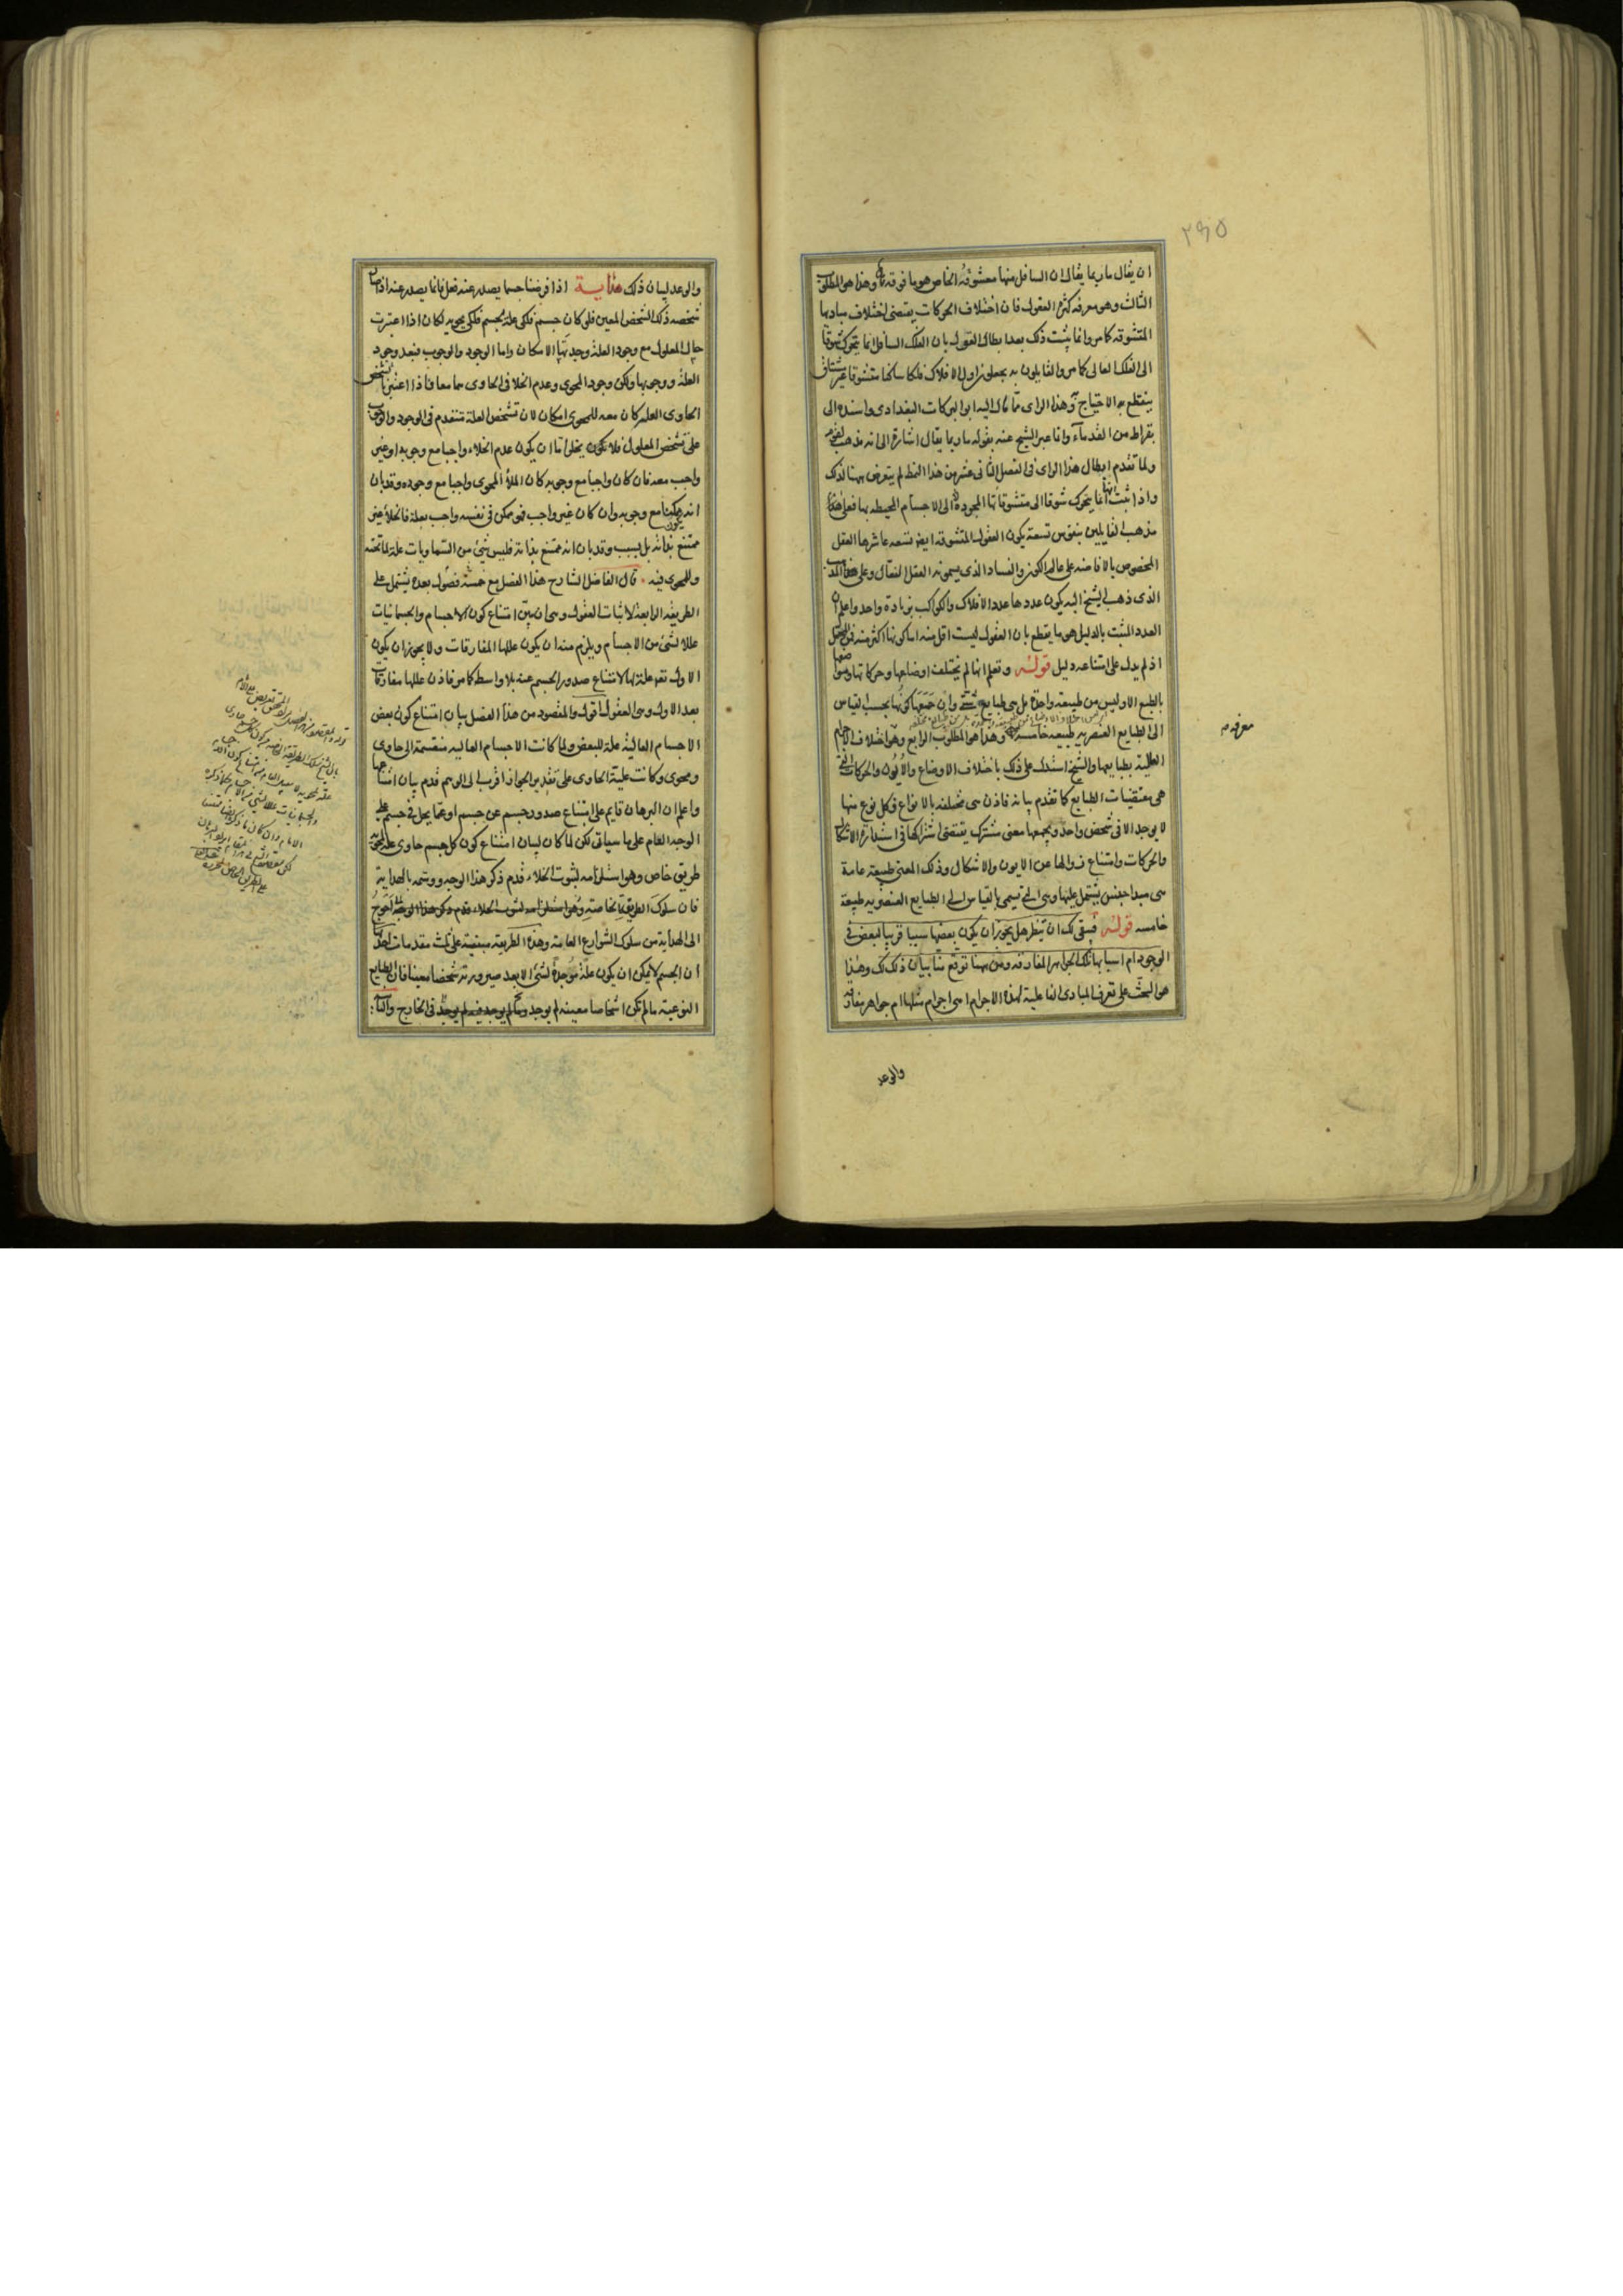 ٢٩٥
ان يقال ما ربما يقال ان السافل منها معشوقه الخاص هو ما فوقه وهذا هو المطلوب
الثالث وهو معرفة كثرة العقول فان اختلاف الحركات يقتضى اختلاف مباديها
المتشوقة كما مر وانما يثبت ذلك بعد ابطال القول بان الفلك السافل انما يتحرك شوقا
الى الفلك العالى كما مر والقايلون به يجعلون اول الافلاك فلكا ساكنا متشوقا غير مشتاق
ينقطع به الاحتياج وهذا الراى مما مال اليه ابو البركات البغدادى واسنده الى
بقراط من القدماء وانما عبر الشيخ عنه بقوله ما ربما يقال اشارة الى انه مذهب لقوم
ولما تقدم ابطال هذا الراى فى الفصل الثانى عشر من هذا النمط لم يتعرض ههنا لذلك
واذا ثبت انها انما يتحرك شوقا الى متشوقاتها المجردة لا الى الاجسام المحيطه بها فعلى هذا
مذهب القايلين بنفوس تسعة يكون العقول المتشوقه ايضا تسعه عاشرها العقل
المخصوص بالافاضه على عالم الكون والفساد الذى يسمونه العقل الفعال وعلى المذهب
الذى ذهب الشيخ اليه يكون عددها عدد الافلاك والكواكب بزيادة واحد واعلم ان
العدد المثبت بالدليل هو ما يقطع بان العقول ليست اقل منه اما كونها اكثر منه فمحتمل
اذ لم يدل على امتناعه دليل قوله وتعلم انها لم تختلف اوضاعها وحركاتها ومواضعها
بالطبع الا وليس من طبيعة واحدة بل هى طبايع شتى وان جمعها كونها بحسب القياس
الى الطبايع العنصريه طبيعه خامسة وهذا هو المطلوب الرابع وهو اختلاف الاجرام
معرفه
العالية بطبايعها والشيخ استدل على ذلك باختلاف الاوضاع والايون والحركات التى
هى مقتضيات الطبايع كما تقدم بيانه فاذن هى مختلفه بالانواع وكل نوع منها
لا يوجد الا فى شخص واحد ويجمعها معنى مشترك يقتضى اشتراكها فى استدارة الاشكال
والحركات وامتناع زوالها عن الايون والاشكال وذلك المعنى طبيعة عامة
هى مبدا جنس يشتمل عليها وهى التى تسمى بالقياس الى الطبايع العنصريه طبيعة
خامسه قوله فبقى لك ان تنظر هل يجوز ان يكون بعضها سببا قريبا لبعض فى
الوجود ام اسبابها تلك الجواهر المفارقه ومن ههنا توقع منا بيان ذلك لك وهذا
هو البحث على تعرف المبادى الفاعلية لهذه الاجرام اهى اجرام مثلها ام جواهر مفارقة
والوعد
والوعد لبيان ذلك هداية اذا فرضنا جسما يصدر عنه فعل فانما يصدر عنه اذا صار
شخصه ذلك الشخص المعين فلو كان جسم فلكى علة لجسم فلكى يحويه لكان اذا اعتبرت
حال المعلول مع وجود العلة وجدتها الامكان واما الوجود والوجوب فبعد وجود
العلة ووجوبها ولكن وجود المحوى وعدم الخلا فى الحاوى هما معا فاذا اعتبرنا تشخص
الحاوى العلة كان معه للمحوى امكان لان تشخص العلة متقدم فى الوجود والوجوب
على تشخص المعلول فلا يخلو اما ان يكون عدم الخلاء واجبا مع وجوبه او غير
واجب معه فان كان واجبا مع وجوبه كان الملأ المحوى واجبا مع وجوده وقد بان
انه يكون ممكنا مع وجوبه وان كان غير واجب فهو ممكن فى نفسه واجب بعلة فالخلأ غير
ممتنع بذاته بل بسبب وقد بان انه ممتنع بذاته فليس شئ من السماويات علة لما تحته
وللمحوى فيه قال الفاضل الشارح هذا الفصل مع خمسة فصول بعده يشتمل على
الطريقه الرابعة لاثبات العقول وهى ان يبين امتناع كون الاجسام والجسمانيات
عللا لشئ من الاجسام ويلزم منه ان يكون عللها المفارقات ولا يجوز ان يكون
الاول تعالى علة لها لامتناع صدور الجسم عنه بلا واسطه كما مر فاذن عللها مفارقات
بعد الاول وهى العقول اقول والمقصود من هذا الفصل بيان امتناع كون بعض
الاجسام العالية علة للبعض ولما كانت الاجسام العاليه منقسمة الى حاوى
ومحوى وكانت علية الحاوى على تقدير الجواز اقرب الى الوهم قدم بيان امتناعها
واعلم ان البرهان قايم على امتناع صدور جسم عن جسم او عما يحل فى جسم على
الوجه العام على ما سياتى لكن لما كان لبيان امتناع كون كل جسم حاوى علة لمحويه
طريق خاص وهو استلزامه لثبوت الخلاء قدم ذكر هذا الوجه ووسمه بالهداية
فان سلوك الطريقة الخاصة وهو استلزامه لثبوت الخلاء قدم ذكر هذا الوجه احوج
الى الهداية من سلوك الشوارع العامة وهذه الطريقة مبنية على ثلث مقدمات احدها
ان الجسم لا يمكن ان يكون علة موجدة لشئ الا بعد صيرورته شخصا معينا فان الطبايع
النوعية ما لم تكن اشخاصا معينه لم يوجد وما لم يوجد فيه لم يوجد فى الخارج والثانية